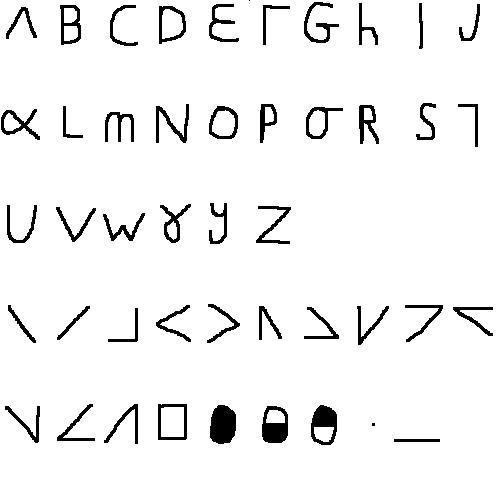 Λ B C D Ɛ Γ G h | J
α L m N O P σ R S ㄱ
U V w ɣ y Z
\ / ⅃ < >
□ . _